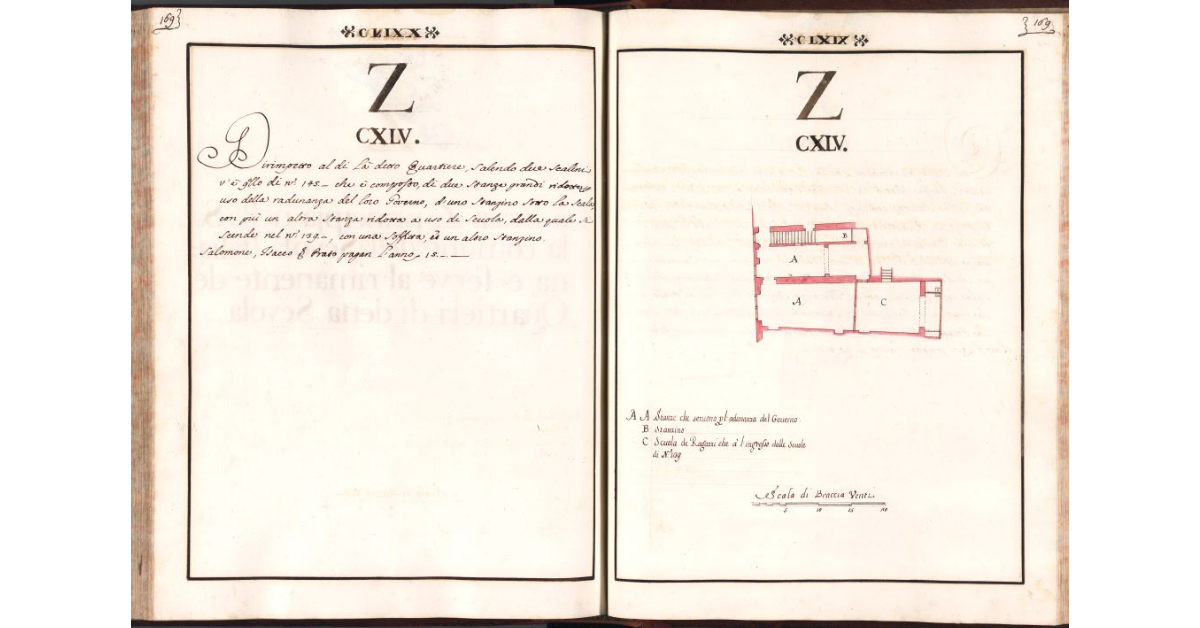 169
Z
CXLV.
Dirimpetto al di La detto Quartiere, Salendo due Scalini
v'è qllo di nº 145_ che è composto, di due Stanze grandi ridotte p
uso della radunanza del loro Governo, d'uno Stanzino Sotto la Scala
con più un altra Stanza ridotta a uso di Scuola, dalla quale Si
Scende nel nº 139_, con una Soffitta, et un altro Stanzino.
Salomone, Isacco Prato pagan l'anno 15_
169
CLXIX
Z
CXLV.
B
A
A
C
A A Stanze che servono pl adunanza del Governo.
B Stanzino
C Scuola de Ragazi che à l'ingresso delle Scuole
di Nº 139
Scala di Braccia Venti
5 10 15 20